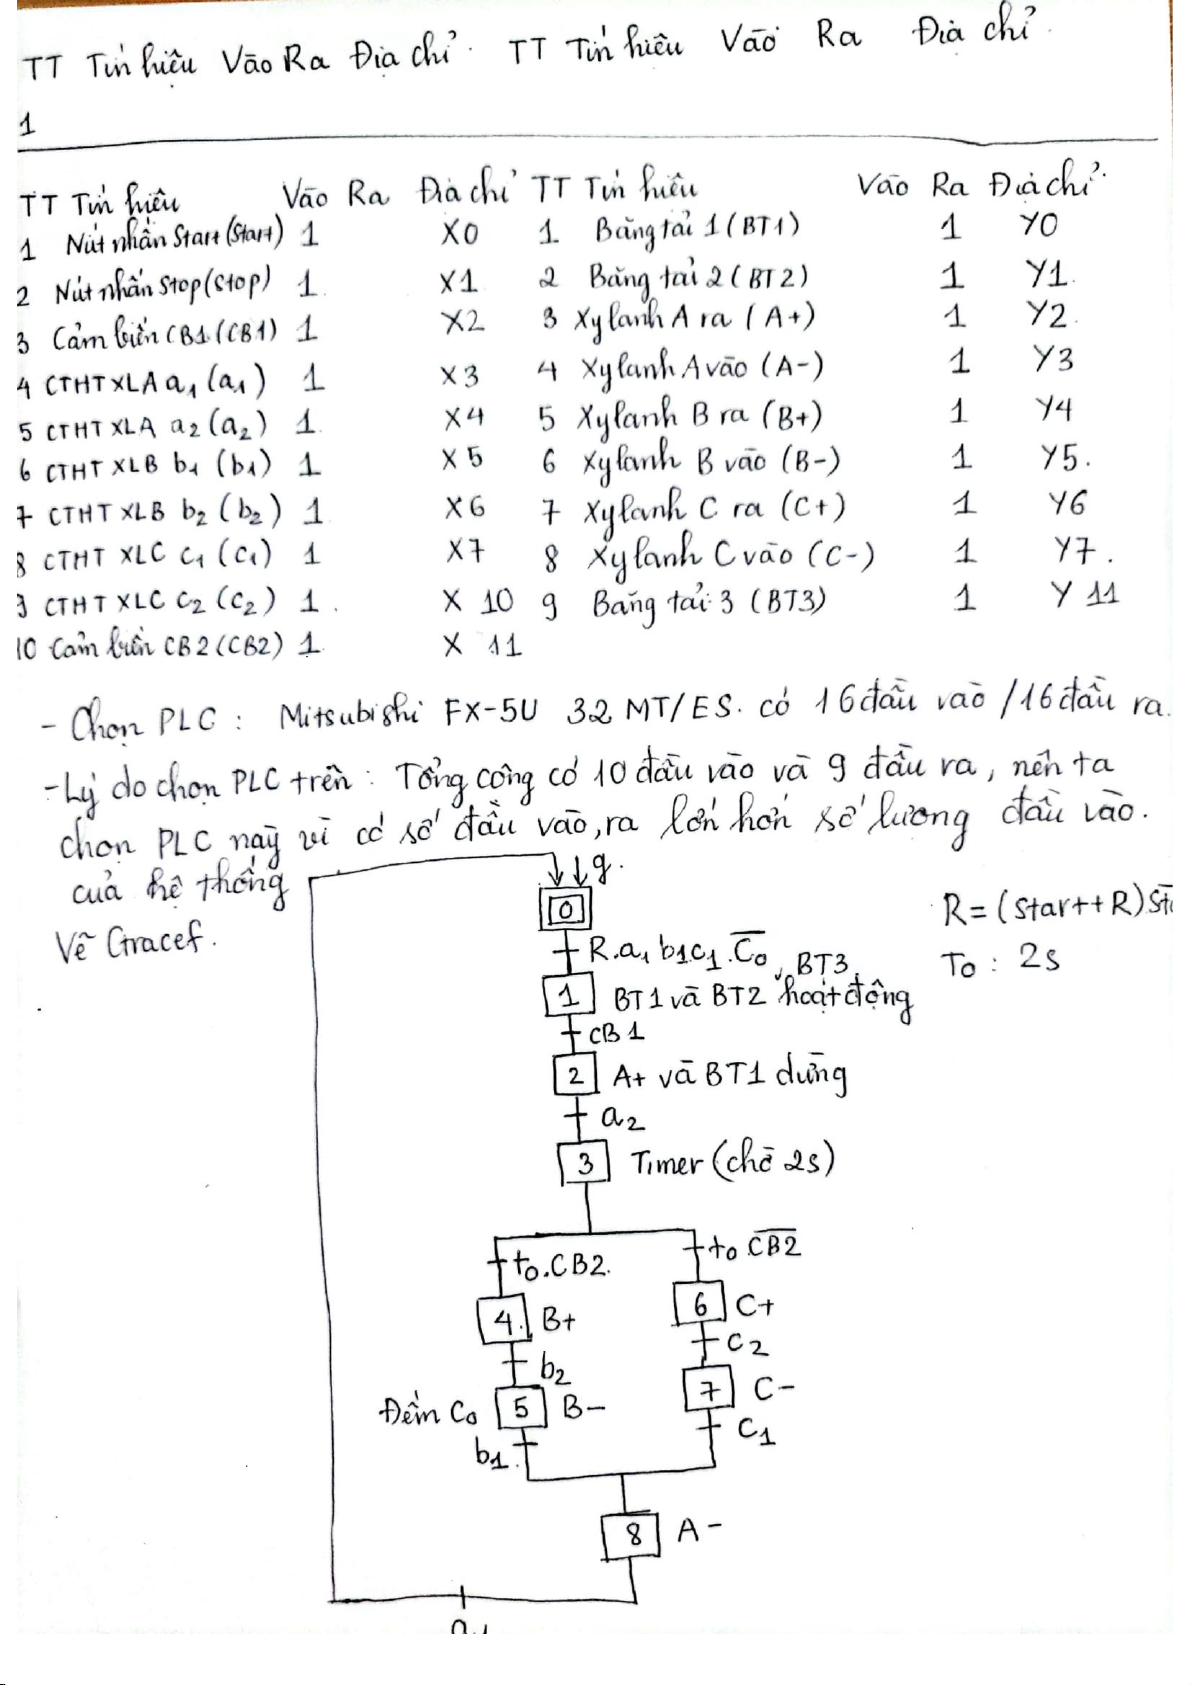 TT Tín hiệu Vào Ra Địa chỉ. TT Tín hiệu Vào Ra Địa chỉ.
1
TT Tín hiệu Vào Ra Địa chỉ TT Tín hiệu Vào Ra Địa chỉ.
1 Nút nhấn Start (Start) 1 X0 1 Băng tải 1 (BT1) 1 Y0
2 Nút nhấn Stop (Stop) 1 X1 2 Băng tải 2 (BT2) 1 Y1
3 Cảm biến CB1 (CB1) 1 X2 3 Xylanh A ra (A+) 1 Y2
4 CTHT XLA a1 (a1) 1 X3 4 Xylanh A vào (A-) 1 Y3
5 CTHT XLA a2 (a2) 1 X4 5 Xylanh B ra (B+) 1 Y4
6 CTHT XLB b1 (b1) 1 X5 6 Xylanh B vào (B-) 1 Y5.
7 CTHT XLB b2 (b2) 1 X6 7 Xylanh C ra (C+) 1 Y6
8 CTHT XLC c1 (c1) 1 X7 8 Xylanh C vào (C-) 1 Y7.
9 CTHT XLC c2 (c2) 1. X 10 9 Băng tải 3 (BT3) 1 Y 11
10 Cảm biến CB2 (CB2) 1 X 11
- Chọn PLC : Mitsubishi FX-5U 32 MT/ES. có 16 đầu vào /16 đầu ra.
- Lý do chọn PLC trên : Tổng cộng có 10 đầu vào và 9 đầu ra, nên ta
chọn PLC này vì có số đầu vào, ra lớn hơn số lượng đầu vào.
của hệ thống
Vẽ Gracef.
g.
0
R = (Start + R) St
R.a1 b1c1.C̅0̅
T0 : 2s
1 BT1 và BT2, BT3 hoạt động
CB1
2 A+ và BT1 dừng
a2
3 Timer (chờ 2s)
t0.CB2. t0 C̅B̅2̅
4. B+ 6 C+
b2 c2
Đếm C0 5 B- 7 C-
b1. C1
8 A-
a1